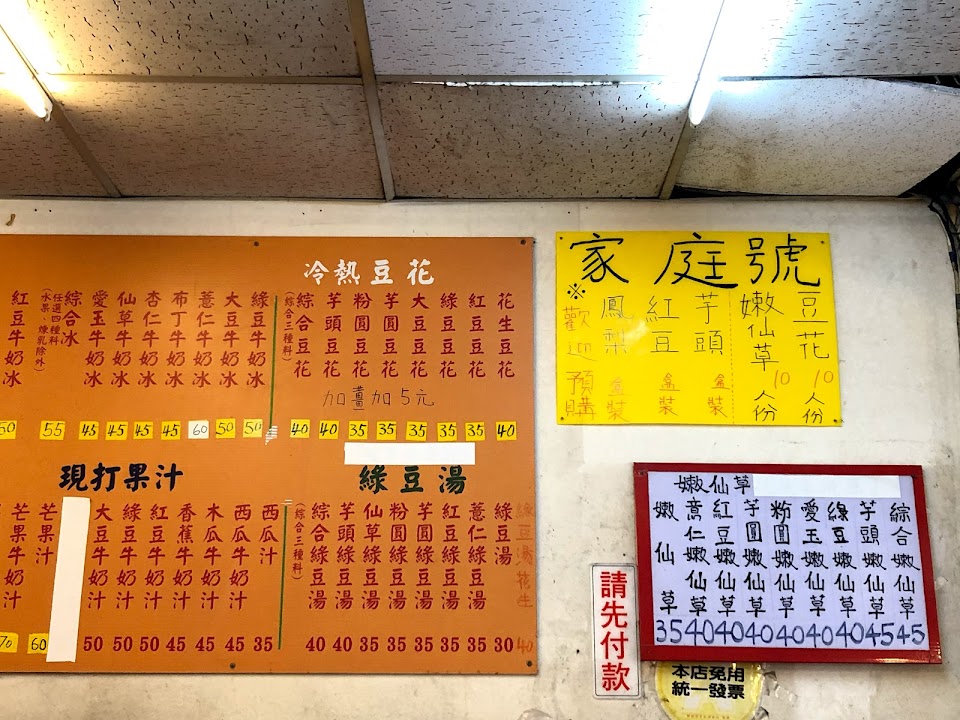 冷熱豆花
花生豆花 40
紅豆豆花 35
綠豆豆花 35
大豆豆花 35
芋圓豆花 35
粉圓豆花 35
芋頭豆花 40
綜合豆花 40
(綜合三種料)
加薑加5元
綠豆牛奶冰 50
大豆牛奶冰 50
薏仁牛奶冰 60
布丁牛奶冰 45
杏仁牛奶冰 45
仙草牛奶冰 45
愛玉牛奶冰 45
綜合冰 55
任選四種料
(水果、煉乳除外)
紅豆牛奶冰 50
綠豆湯
綠豆湯花生 40
綠豆湯 30
薏仁綠豆湯 35
紅豆綠豆湯 35
芋圓綠豆湯 35
粉圓綠豆湯 35
仙草綠豆湯 35
芋頭綠豆湯 40
綜合綠豆湯 40
(綜合三種料)
現打果汁
西瓜汁 35
西瓜牛奶汁 45
木瓜牛奶汁 45
香蕉牛奶汁 45
紅豆牛奶汁 50
綠豆牛奶汁 50
大豆牛奶汁 50
芒果汁 60
芒果牛奶汁 70
家庭號
豆花 10人份
嫩仙草 10人份
芋頭 盒裝
紅豆 盒裝
鳳梨 盒裝
※歡迎預購
嫩仙草
綜合嫩仙草 45
芋頭嫩仙草 45
綠豆嫩仙草 40
愛玉嫩仙草 40
粉圓嫩仙草 40
芋圓嫩仙草 40
紅豆嫩仙草 40
意仁嫩仙草 40
嫩仙草 35
請先付款
本店免用
統一發票